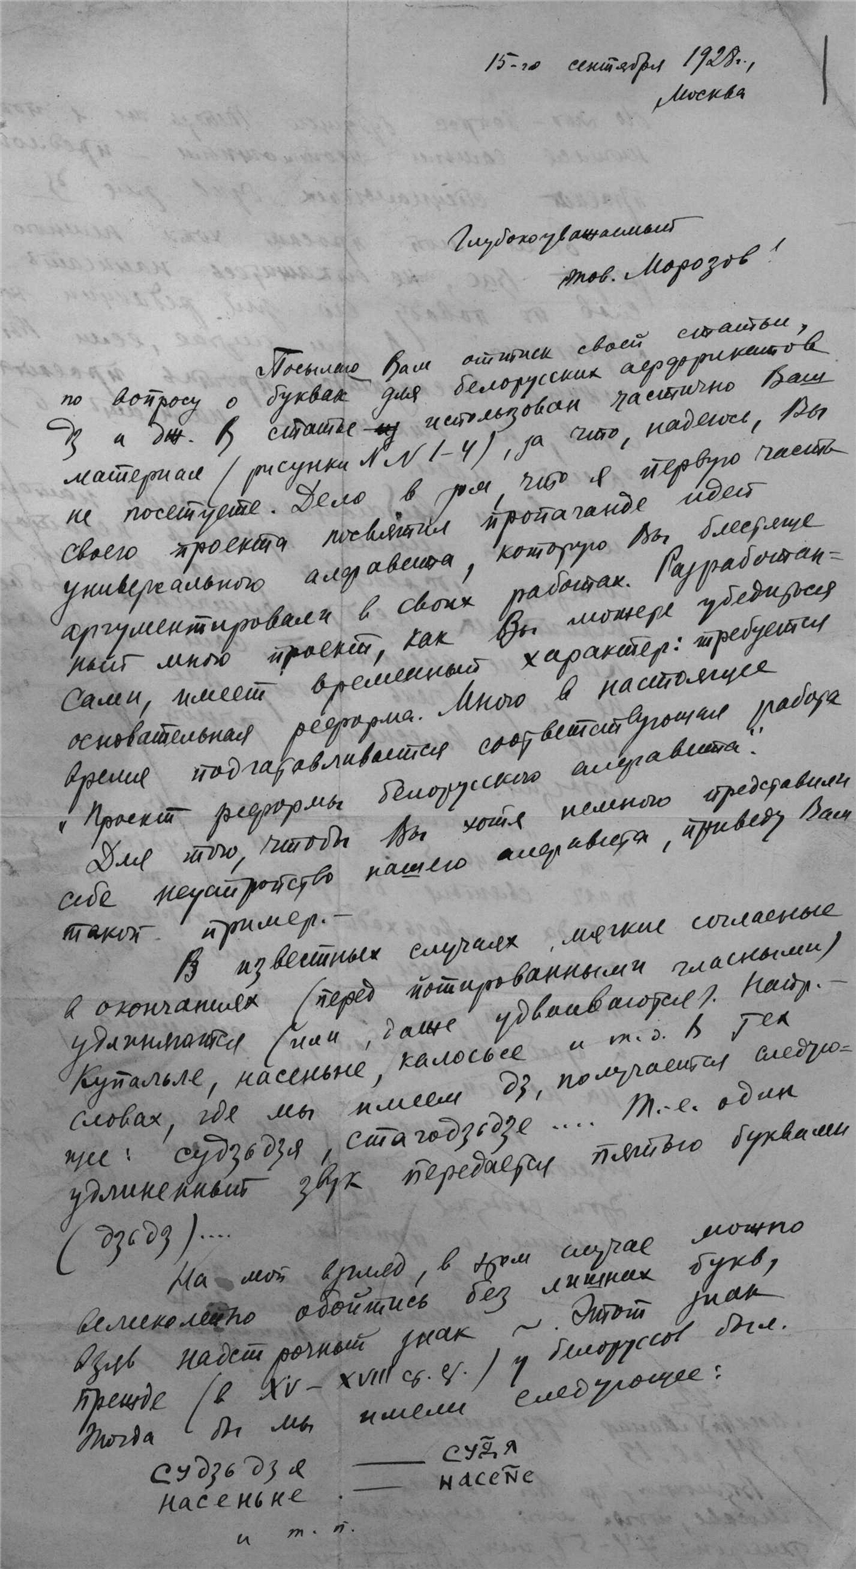 15-го сентября 1928 г.,
Москва
Глубокоуважаемый
тов. Морозов!
Посылаю Вам оттиск своей статьи,
по вопросу о буквах для белорусских аффрикатов
дз и дж. В статье использован частично Ваш
материал (рисунки NN 1-4), за что, надеюсь, Вы
не посетуете. Дело в том, что я первую часть
своего проекта посвятил пропаганде идеи
универсального алфавита, которую Вы блестяще
аргументировали в своих работах. Разработан=
ный мною проект, как Вы можете убедиться
сами, имеет временный характер: требуется
основательная реформа. Мною в настоящее
время подготавливается соответствующая работа
"Проект реформы белорусского алфавита".
Для того, чтобы Вы хотя немного представили
себе неустройство нашего алфавита, приведу Вам
такой пример.—
В известных случаях мягкие согласные
в окончаниях (перед йотированными гласными)
удлиняются (или даже удваиваются). Напр.—
Купальле, насеньне, калосьсе и т.д. В тех
словах, где мы имеем дз, получается следую=
щее: судзьдзя, стагодзьдзе .... Т.-е. один
удлиненный звук передается пятью буквами
(дзьдз)....
На мой взгляд, в этом случае можно
великолепно обойтись без лишних букв,
взяв надстрочный знак ~. Этот знак
прежде (в XV – XVIII ст. ст.) у белоруссов был.
Тогда бы мы имели следующее:
судзьдзя —— суд̃я
насеньне —— насен̃е
и т. п.